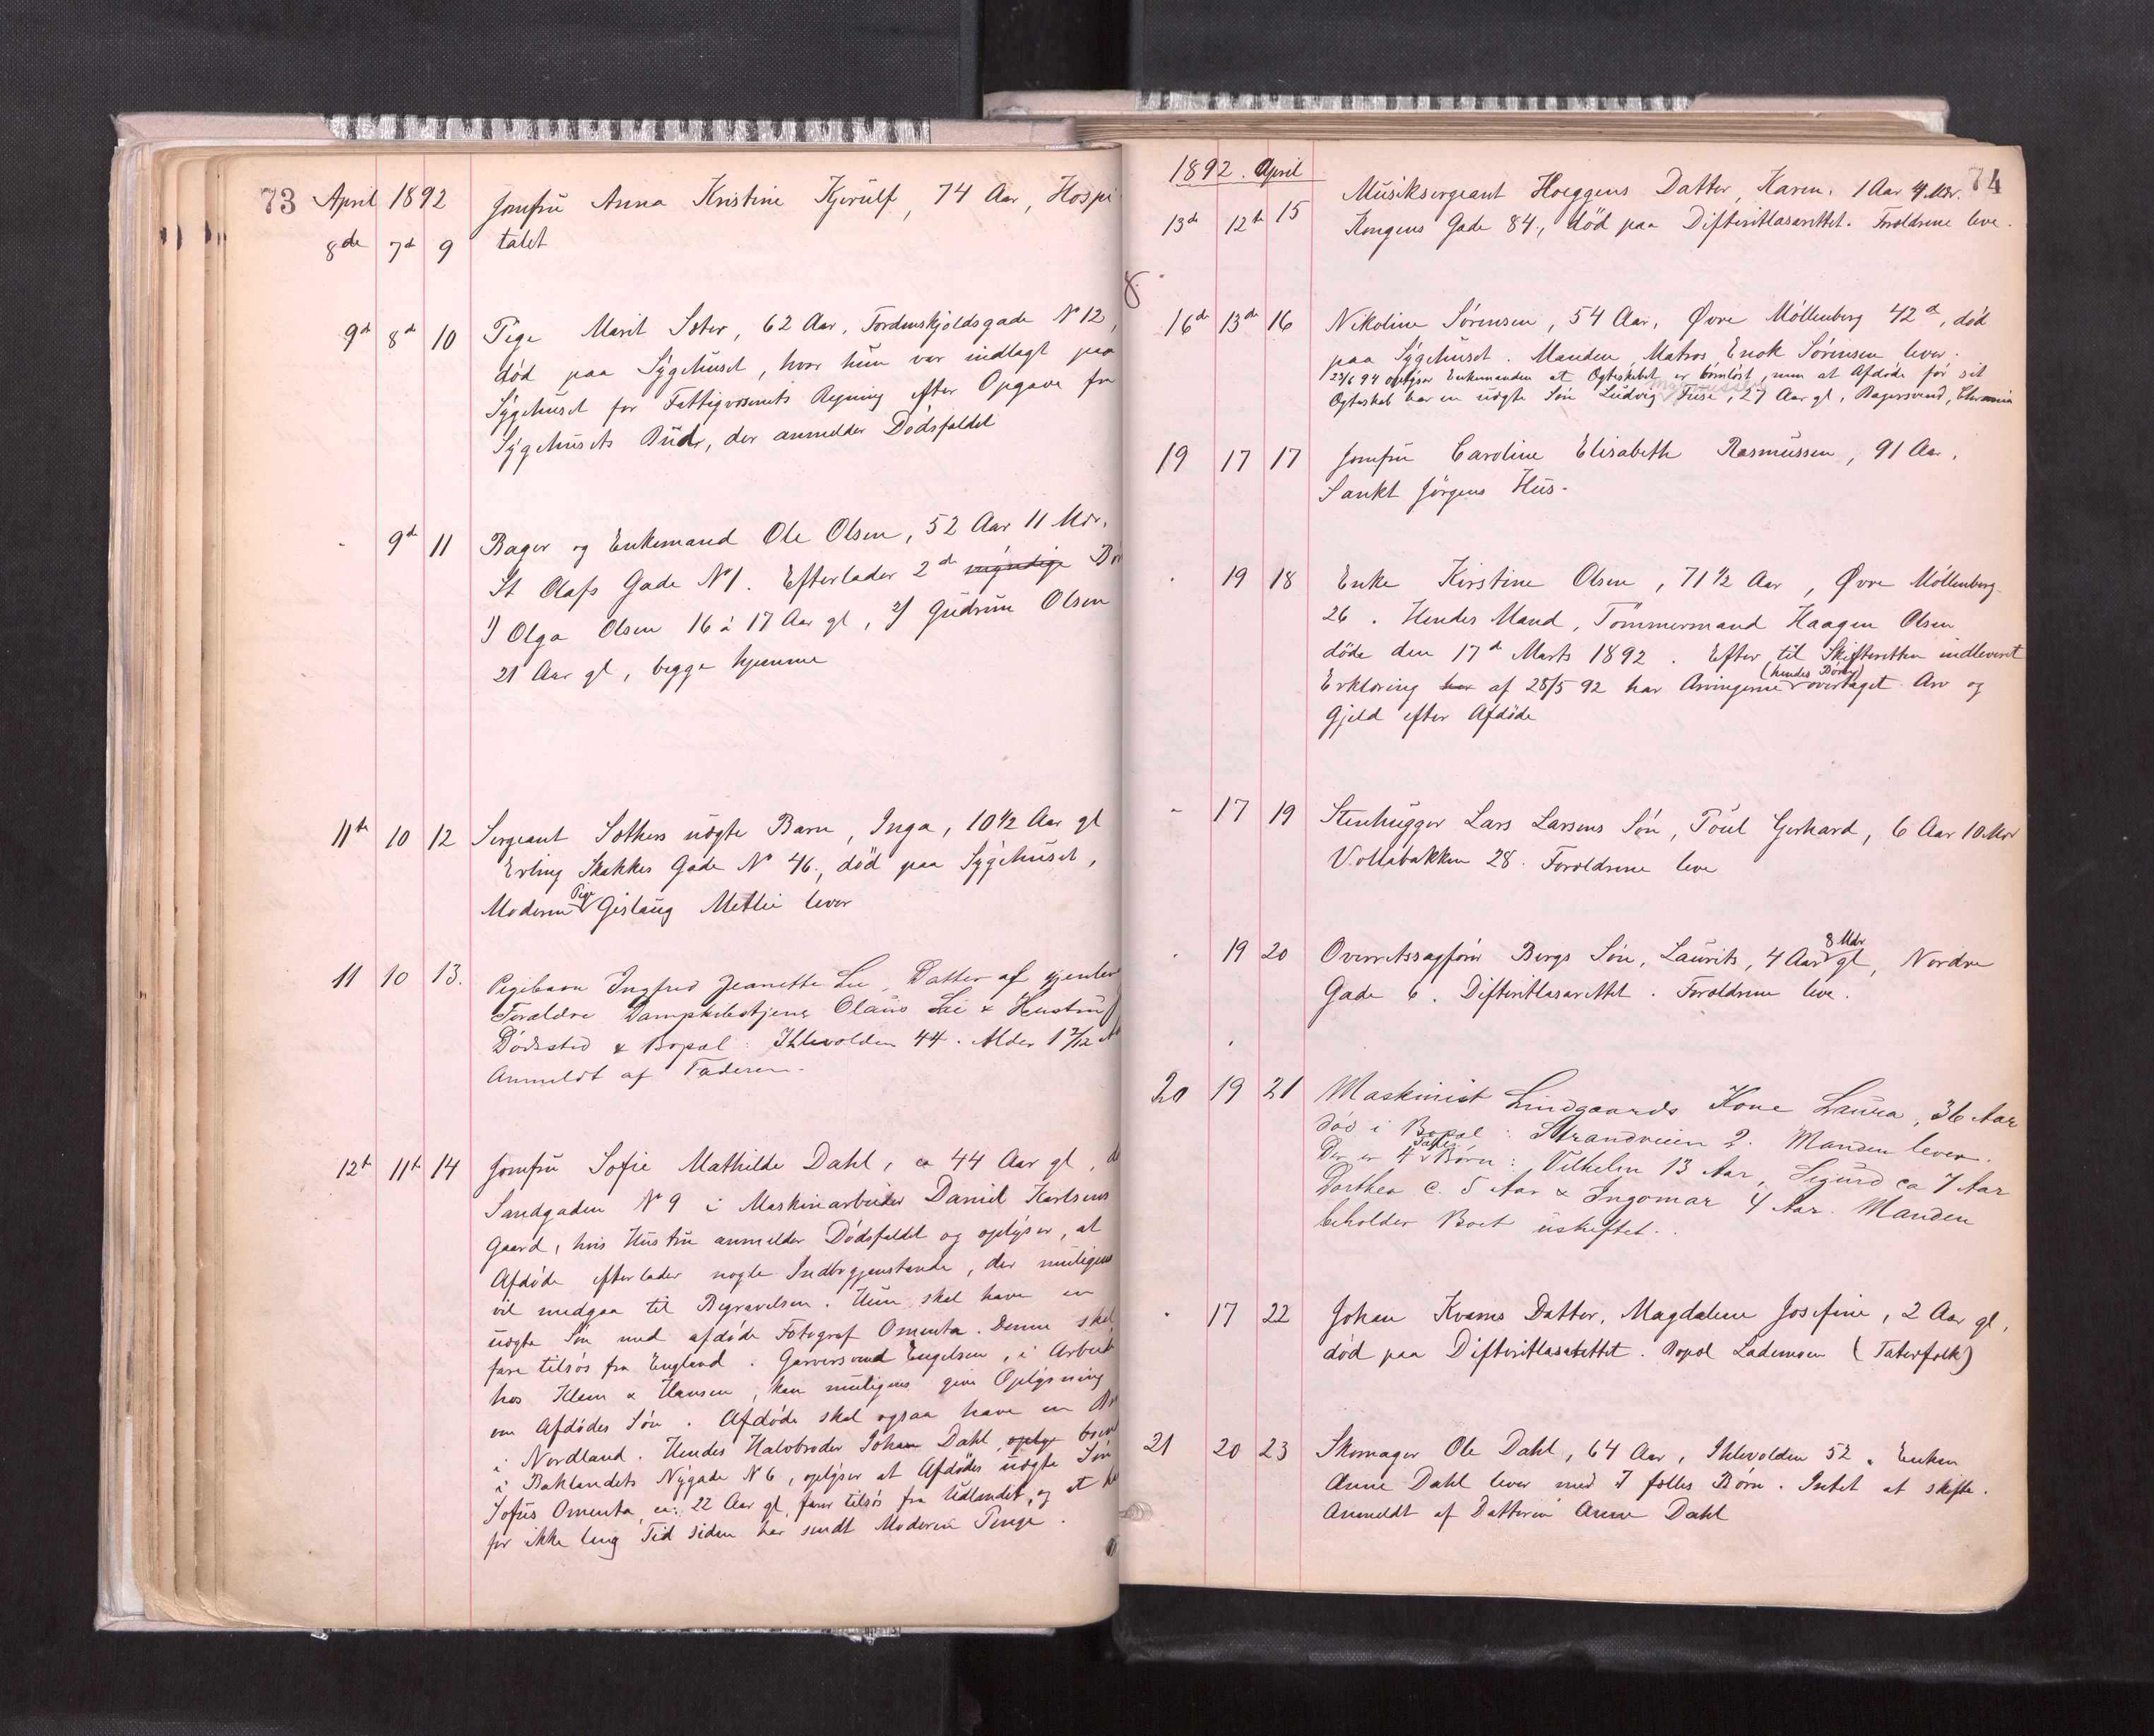 73 April 1892
8de 7d 9 Jomfru Anna Kristine Kjerulf, 74 Aar, Hospi-
talet
9d 8d 10 Pige Marit Sæter, 62 Aar, Tordenskjoldsgade No 12,
død paa Sygehuset, hvor hun var indlagt paa
Sygehuset for Fattigvæsenets Regning efter Opgave fra
Sygehusets Bud, der anmelder Dødsfaldet
- 9d 11 Bager og Enkemand Ole Olsen, 52 Aar 11 Mdr.
St Olafs Gade No 1. Efterlader 2de myndige Bø
1) Olga Olsen 16 à 17 Aar gl, 2) Gudrun Olsen
21 Aar gl, begge hjemme
11te 10 12 Sergeant Sæthers uægte Barn, Inga, 10 1/2 Aar gl
Erling Skakkes Gade No 46, død paa Sygehuset,
Moderen Pige Gislaug Metlie lever
11 10 13. Pigebarn Ingfred Jeanette Lie, Datter af gjenlev
Forældre Dampskibstjener Olaus Lie & Hustru
Dødssted & Bopæl: Ihlevolden 44. Alder 1 2/12 A
Anmeldt af Faderen.
12t 11t 14 Jomfru Sofie Mathilde Dahl, ca 44 Aar gl, d
Sandgaden No 9 i Maskinarbeider Daniel Karlsens
Gaard, hvis Hustru anmelder Dødsfaldet og oplyser, at
Afdøde efterlader nogle Indbogjenstande, der muligens
vil medgaa til Begravelsen. Hun skal have en
uægte Søn med afdøde Fotograf Omenta. Denne skal
fare tilsøs fra England. Garversvend Engelsen, i Arbeid
hos Klem & Hansen, kan muligens give Oplysning
om Afdødes Søn. Afdøde skal ogsaa have en Br
i Nordland. Hendes Halvbroder Johan Dahl, oply boen
i Baklandets Nygade N 6, oplyser at Afdødes uægte Søn
Sofus Omenta, ca: 22 Aar gl, farer tilsøs fra Udlandet, og at h
for ikke lang Tid siden har sendt Moderen Penge.
1892. April 74
13d 12t 15 Musiksergeant Hoeggens Datter, Karen, 1 Aar 4 Mdr.
Kongens Gade 84, død paa Difteritlasarettet. Forældrene leve.
16de 13de 16 Nikoline Sørensen, 54 Aar, Øvre Møllenberg 42a, død
paa Sygehuset. Manden, Matros Enok Sørensen lever.
23/6 94 oplyser Enkemanden at Ægteskabet er børnløst, men at Afdøde før sit
Ægteskab har en uægte Søn Ludvig Fuse, 27 Aar gl, Bagersvend,
19 17 17 Jomfru Caroline Elisabeth Rasmussen, 91 Aar,
Sankt Jørgens Hus.
- 19 18 Enke Kirstine Olsen, 71 1/2 Aar, Øvre Møllenberg
26. Hendes Mand, Tømmermand Haagen Olsen
døde den 17de Marts 1892. Efter til Skifteretten indleveret
Erklæring har af 28/5 92 har Arvingerne (hendes Børn) overtaget Arv og
Gjeld efter Afdøde
- 17 19 Stenhugger Lars Larsens Søn, Poul Gerhard, 6 Aar 10 Mdr
Vollabakken 28. Forældrene leve
- 19 20 Overretssagfører Bergs Søn, Laurits, 4 Aar 8 Mdr gl, Nordre
Gade 6. Difteritlasarettet. Forældrene leve.
20 19 21 Maskinist Lindgaards Kone Laura, 36 Aar
død i Bopæl: Strandveien 2. Manden lever.
Der er 4 fælles Børn: Vilhelm 13 Aar, Sigurd ca 7 Aar
Dorthea c. 5 Aar & Ingomar 4 Aar. Manden
beholder Boet uskiftet.
- 17 22 Johan Kvams Datter, Magdalene Josefine, 2 Aar gl,
død paa Difteritlasarettet. Bopæl Lademoen (Taterfolk)
21 20 23 Skomager Ole Dahl, 64 Aar, Ihlevolden 52. Enken
Anne Dahl lever med 7 fælles Børn. Intet at skifte.
Anmeldt af Datteren Anna Dahl